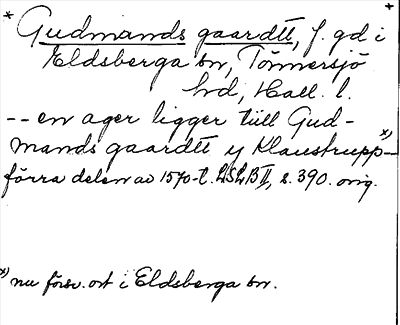 * Gudmands gaardtt, f. gd i +
Eldsberga sn, Tönnersjö
hd, Hall. l.
-- en ager ligger tiill Gud-
mands gaardtt y Klaustrupp x) --
förra delen av 1570-t. LSLB II, s. 390. orig.
x) nu försv. ort i Eldsberga sn.